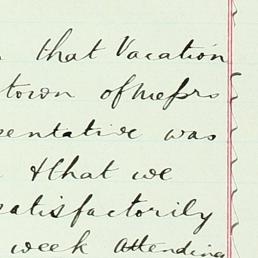 that Vacation
town of Messrs
sentative was
& that we
satisfactorily
week attending